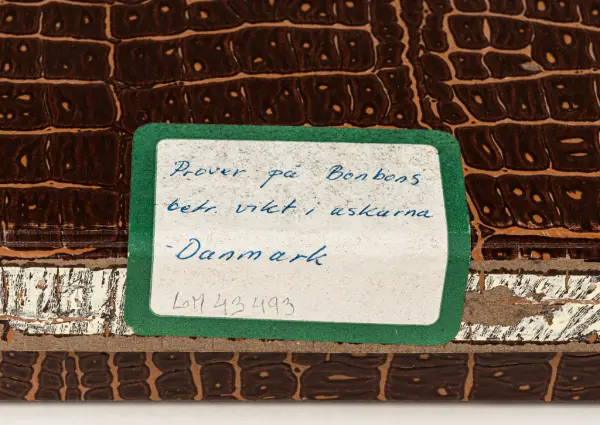 Prover på Bonbons
betr. vikt i askarna
- Danmark
LM 43 493